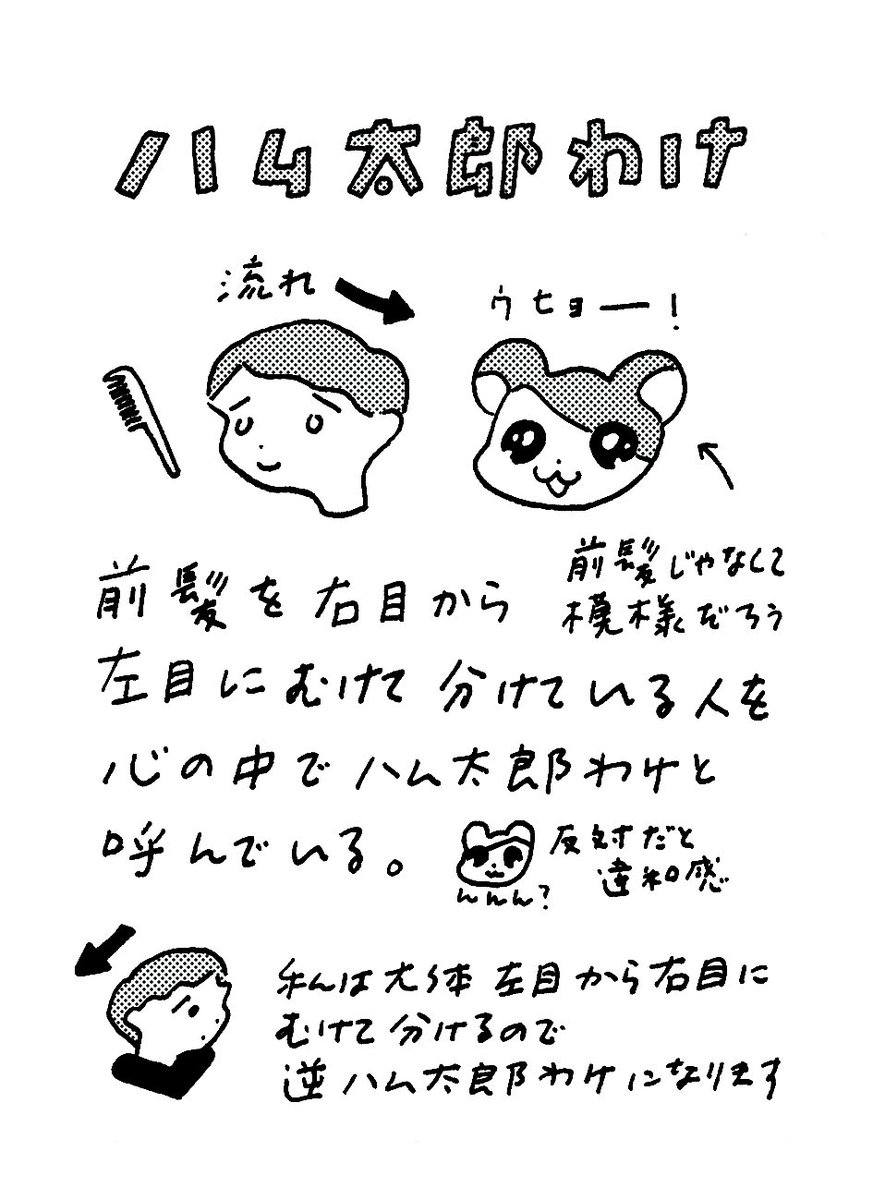 ハム太郎わけ
流れ
ウヒョー!
前髪じゃなくて
模様だろう
前髪を右目から
左目にむけて分けている人を
心の中でハム太郎わけと
呼んでいる。
んんん?
反対だと
違和感
私は大体左目から右目に
むけて分けるので
逆ハム太郎わけになります